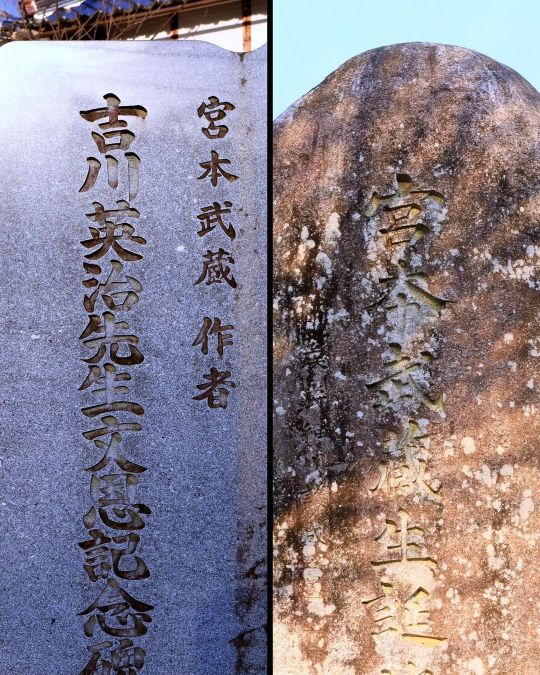 宮本武蔵 作者
吉川英治先生文恩記念碑
宮本武蔵生誕